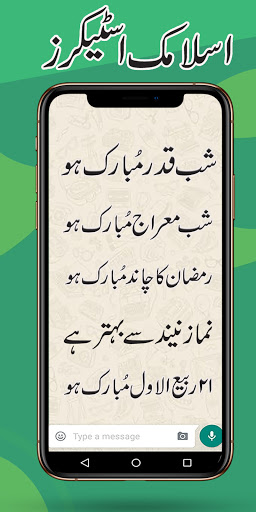 اسلامک اسٹیکرز
شب قدر مُبارک ہو
شب معراج مُبارک ہو
رمضان کا چاند مُبارک ہو
نماز نیند سے بہتر ہے
۲۱ ربیع الاول مُبارک ہو
Type a message